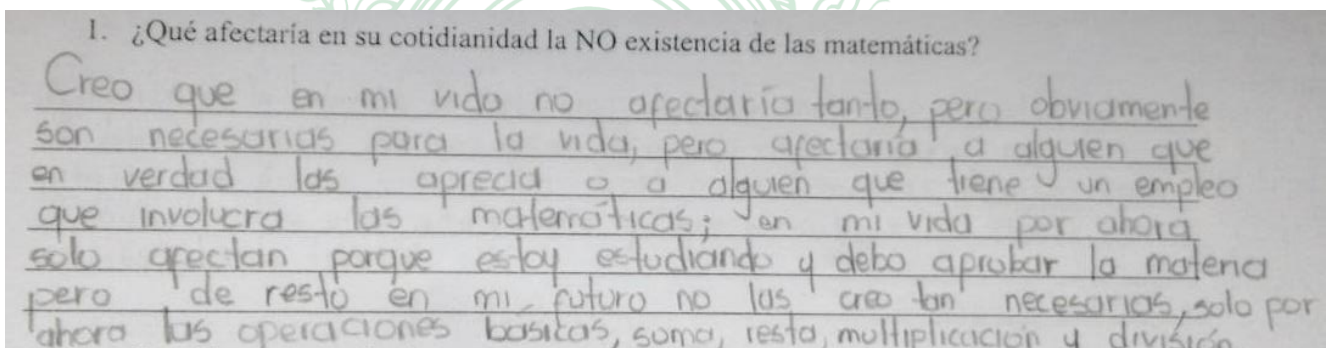 1. ¿Qué afectaría en su cotidianidad la NO existencia de las matemáticas?
Creo que en mi vida no afectaría tanto, pero obviamente
son necesarias para la vida, pero afectaría a alguien que
en verdad las aprecia o a alguien que tiene un empleo
que involucra las matemáticas; en mi vida por ahora
solo afectan porque estoy estudiando y debo aprobar la materia
pero de resto en mi futuro no las creo tan necesarias, solo por
ahora las operaciones básicas, suma, resta, multiplicación y división